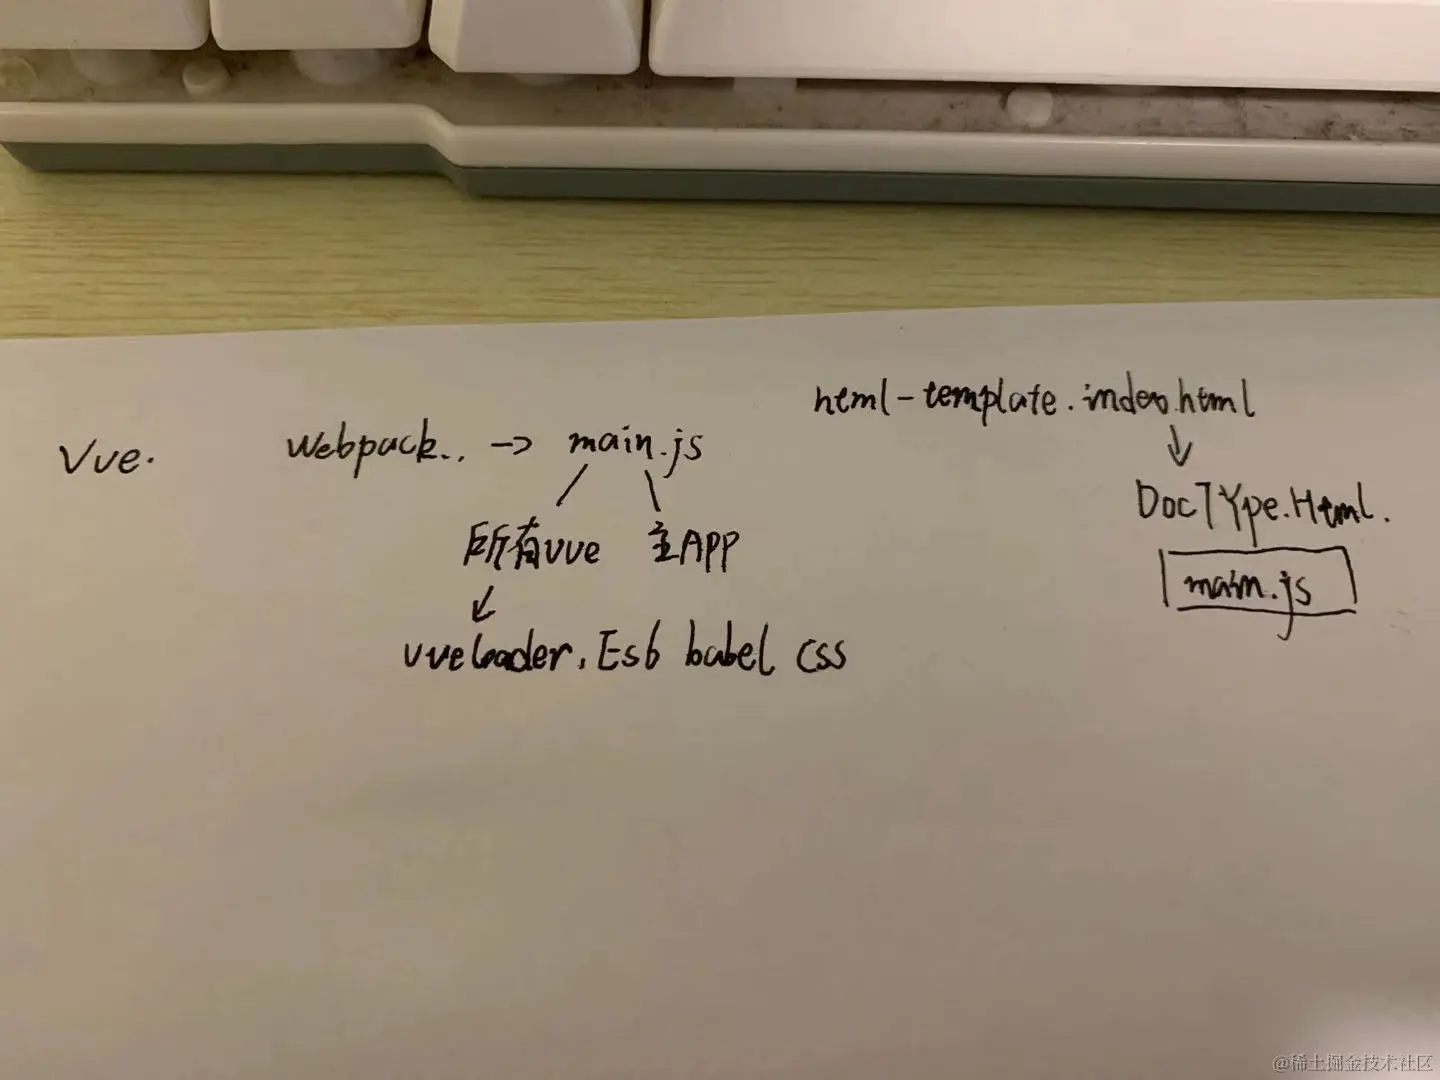 html-template.index.html
Vue.
Webpack.. -> main.js
DocTYpe.Html.
所有vue 主APP
main.js
vueloader, Es6 babel css
@稀土掘金技术社区